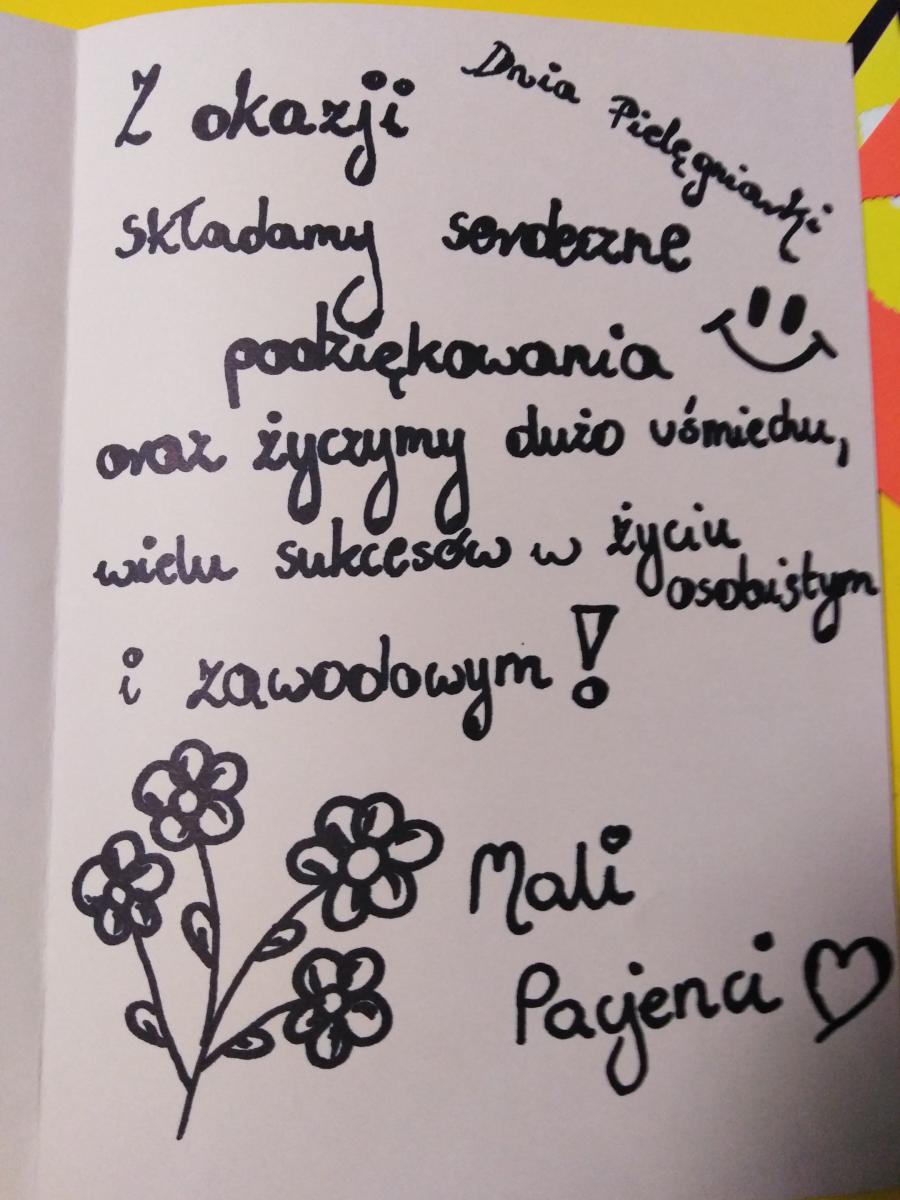 Z okazji Dnia Pielęgniarki
składamy serdeczne
podziękowania
oraz życzymy dużo uśmiechu,
wielu sukcesów w życiu
osobistym
i zawodowym!
Mali
Pacjenci